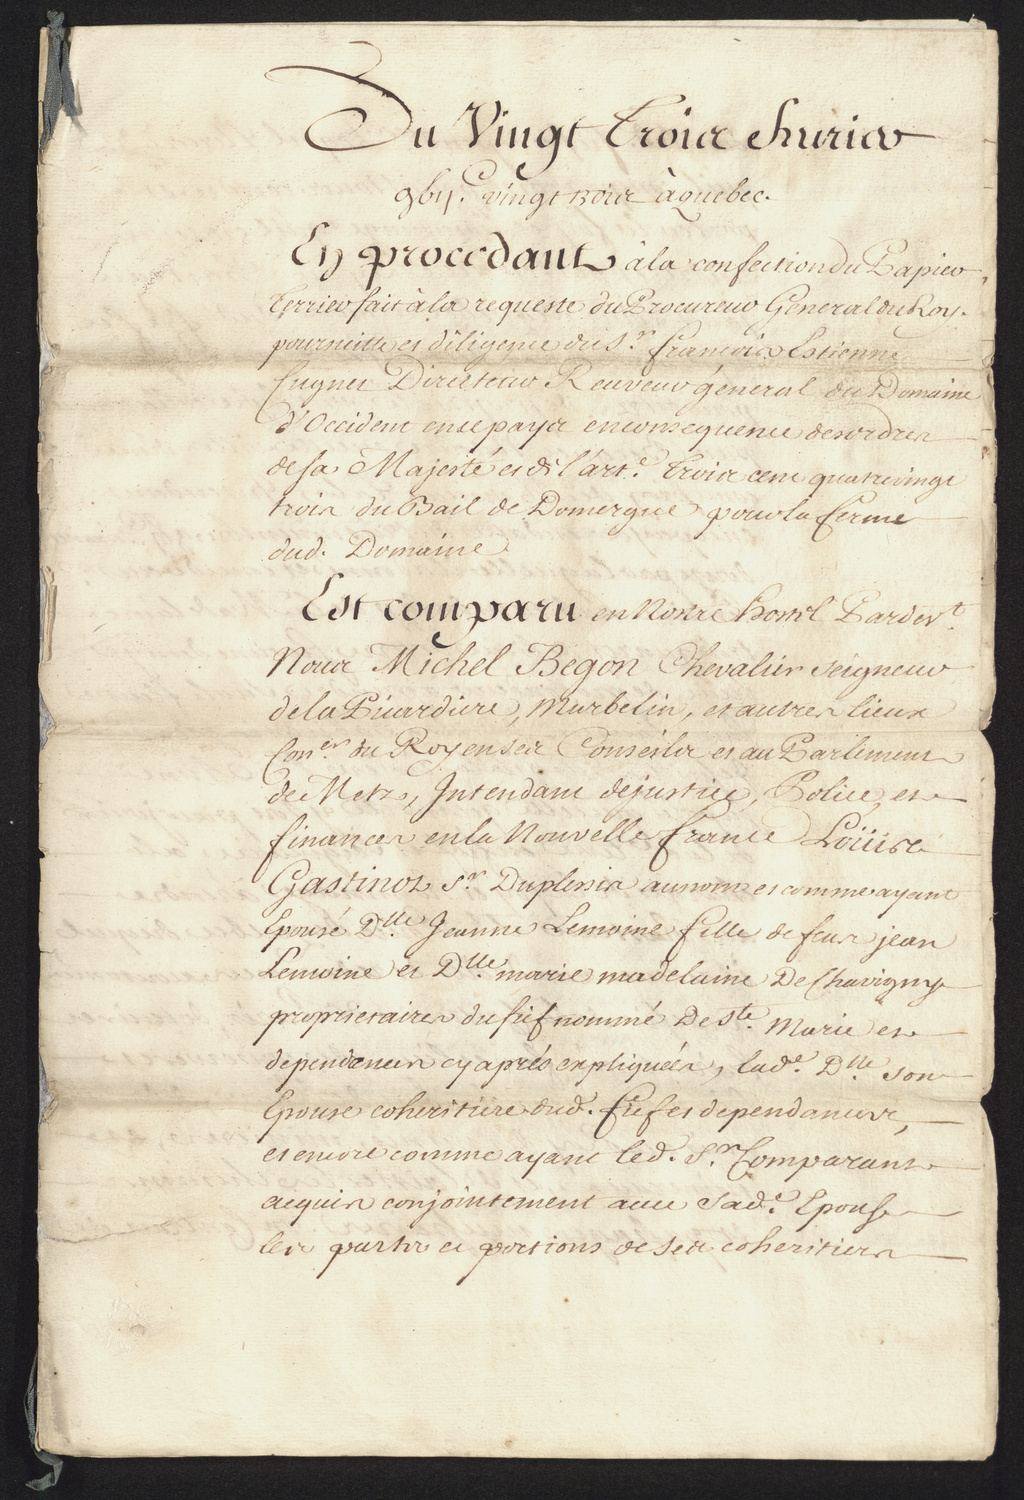 Du Vingt trois fevrier
gbij.^c vingt trois à quebec.
En procedant à la confection du Papier
terrier fait à la requeste du Procureur General du Roy.
poursuitte et diligence du S.^r francois Estienne
Cugnet Directeur Receveur general du Domaine
d'Occident en ce pays en consequence des ordres
de sa Majesté et de l'art.^e trois cent quatre vingt
trois du Bail de Domergue pour la ferme
dud. Domaine
Est comparu en Nostre hostel Pardev.^t
Nous Michel Begon Chevalier seigneur
de la Picardiere, Murbelin, et autres lieux
Con.^er du Roy en ses Conseils et au Parlement
de Metz, Intendant de justice, Police, et
finances en la Nouvelle france Loüis
Gastinot S.^r Duplessis au nom et comme ayant
Epousé D.^lle Jeanne Lemoine fille de feus jean
Lemoine et D.^lle marie madelaine De Chavigny
proprietaires du fief nommé De S^te. Marie et
dependences cy aprés expliquées, lad.^e D.^lle son
Epouse coheritiere dud. fief et dependances,
et encore comme ayant led. S.^r Comparant
acquis conjointement avec sad.^e Epouse
les parts et portions de ses coheritiers